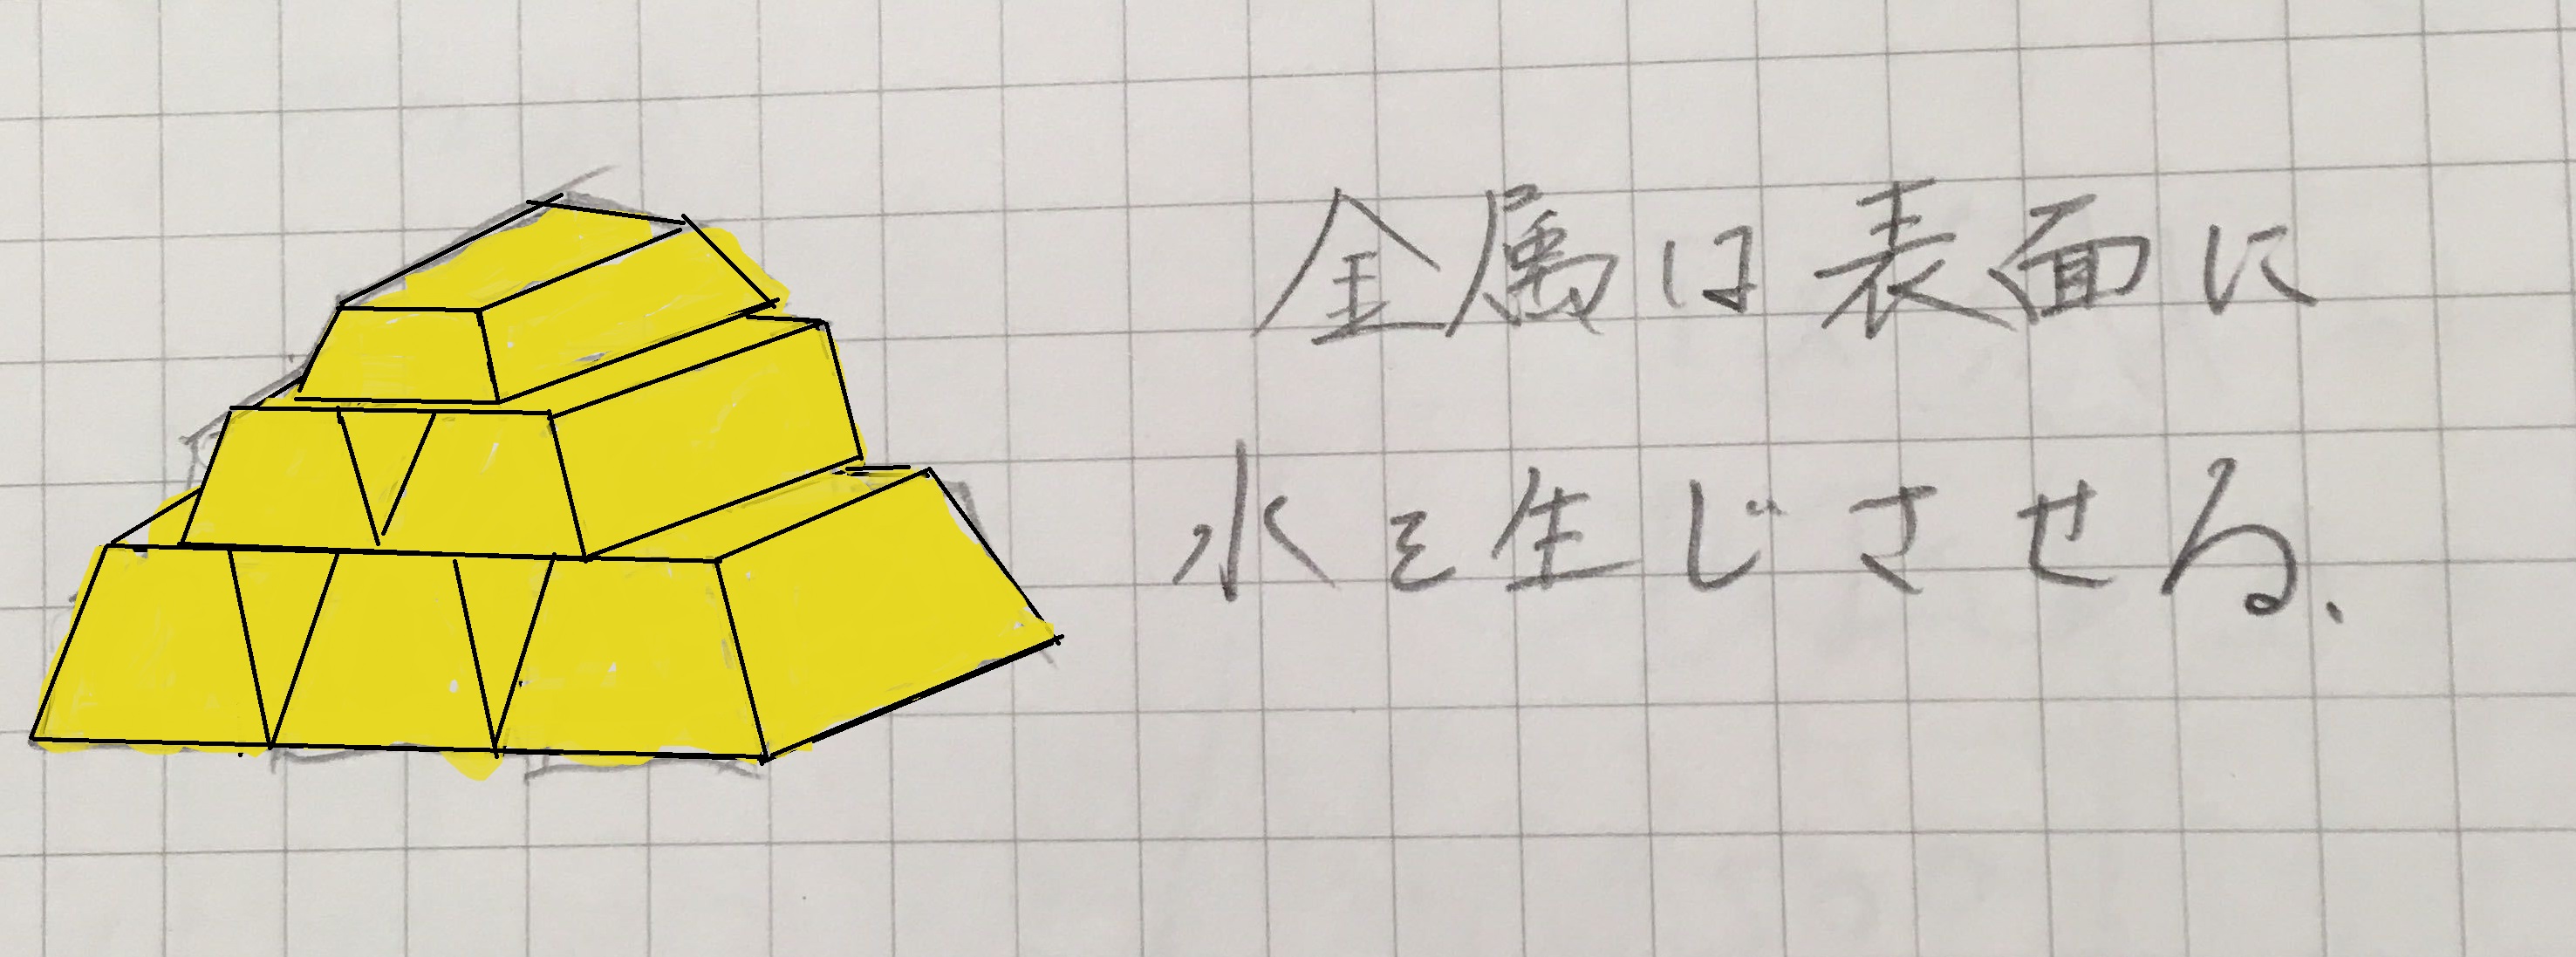 金属は表面に
水を生じさせる.